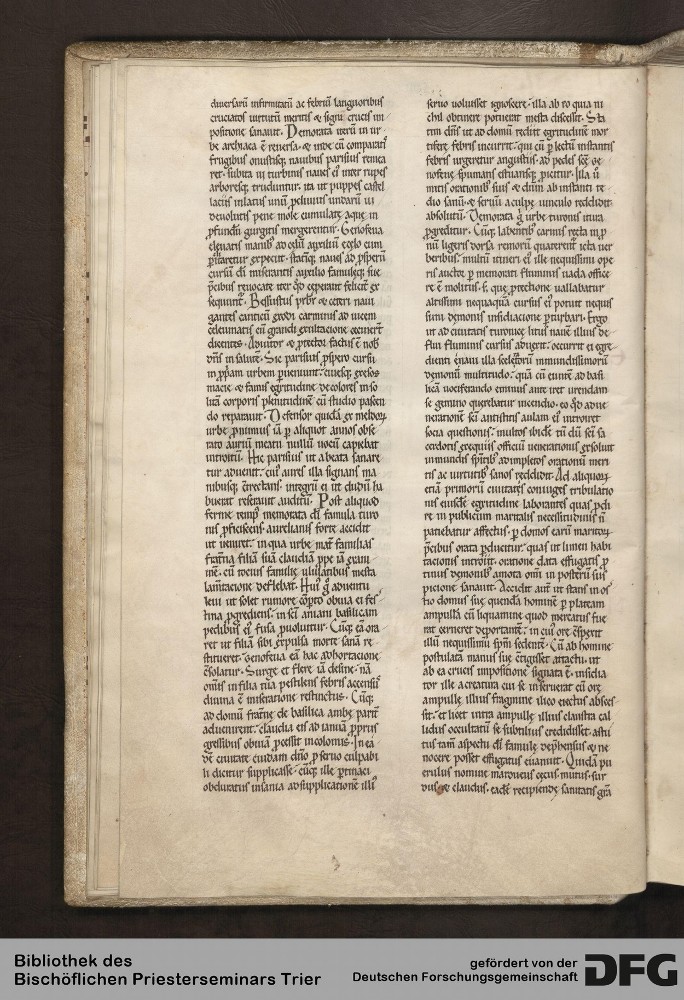 diuersarū infirmitatū ac febriū languoribus
cruciatos uirtutū meritis & signi crucis im
positione sanauit. Demorata uerū in ur
be archiaca ē reuersa. & inde cū comparatis
frugibus onustisq; nauibus parisius remea
ret. subita ui turbinis naues ei inter rupes
arboresq; truduntur. ita ut puppes castel
laciis inlatis unū peluuii undarū ui
deuolutis pene mole cumulatę aquę in
pfundū gurgitis mergerentur. Genofeua
eleuatis manib; ad celū auxiliū
expecit. statimq; naues ad psperū
cursū dī miserantis auxilio famuleq; sue
pcibus reuocate iter qd ceperant feliciter ex
sequunt. Bessustus prbr & ceteri naui
gantes canticū exodi carminis ad uicem
celeumatis cū grandi exultatione cecinert
dicentes. Adiutor & protector factus ē nob
dns in salute. Sic parisius pspero cursu
in ppam urbem pueniunt. cuiusq; exesos
macie & famis egritudine decolores in so
litā corporis plenitudinē cū studio pascen
do reparauit. Defensor quidā ex meldorꝝ
urbe pnimius iā p aliquot annos obse
rato auriū meatu nullū uocū capiebat
introitū. Hic parisius ut a beata sanare
tur aduenit. cui aures illa signans ma
nibusq; ctrectans. integrū ei ut dudū ha
buerat reserauit auditū. Post aliquod
ferme temps memorata dī famula turo
nis pficiscens aurelianis forte accidit
ut ueniret. in qua urbe mat familias
fraterna filiā suā claudiā ppe iā exani
mē. cū tocius familie ululatibus mesta
lamtacione deflebat. Hui g aduentu
leui ut solet rumore copto obuia ei fes
tina pgrediens. in sci aniani basilicam
pedibus ei fusa puoluitur. Cūq; eā ora
ret ut filiā sibi expulsa morte sanā re
stitueret. Genofeua eā hac adhortacione
csolatur. Surge et flere iā desine. nā
omis in filia tua pestilens febris accensū
diuina ē miseratione restinctus. Cūq;
ad domū fratne de basilica ambe parit
aduenirent. claudia eis ad ianuā pprus
gressibus obuiā pcessit incolomis. In ea
dē ciuitate cuidam dno p seruo culpabi
li dicitur supplicasse. cūq; ille ptinaci
obduratus insania ad supplicationē illi
seruo uoluisset ignoscere. illa ab eo quia ni
chil obtinere potuerat mesta discessit. Sta
tim dns ut ad domū rediit egritudinē mor
tiferę febris incurrit. qui cū p lectū instantis
febris urgeretur angustiis. ad pedes sce ge
nofeue spumans estuansq; picitur. Illa ū
mitis orationib; suis & dnm ab instanti te
dio sanū. & seruū a culpe uinculo reddidit
absolutū. Demorata g urbe turonis itura
pgreditur. Cūq; labentis carinis recta in p
nū ligeris dorsa remorū quaterent icta uer
beribus. multū itineri ei ille nequissimi ope
ris auctor p memorati fluminis uada office
re ē molitus. s. que ptectione uallabatur
altissimi nequaquā cursus ei potuit nequis
simi demonis insidiacione pturbari. Ergo
ut ad ciuitatis turonice litus nauē illius de
flui fluminis cursus aduexit. occurrit ei egre
dienti e naui illa scelestorū inmundissimorū
demonū multitudo. quā cū euntē ad basi
licā uociferando eminus ante iret urendam
se gemino querebatur incendio. eo qd adue
nerationē sci antistitis aulam ei introiret
socia questionis. multos ibidē tū dū sci sa
cerdotis exequiis officiū uenerationis exsoluit
inmundis spiritib; adimpletos orationū meri
tis ac uirtutib; sanos reddidit. Ad aliquorꝝ
etiā primorū ciuitatis coniuges tribulatio
nis eiusdē egritudine laborantes quas pdi
re in publicum maritalis necessitudinis n
patiebatur affectus. p domos earū maritorꝝ
pcibus orata pducitur. quas ut limen habi
tacionis introiit. oratione data effugatis p
tinus demonib; amota omī in posterū sus
picione sanauit. Accidit aut ut stans in os
tio domus sue quendā hominē p plateam
ampullā cū liquamine quod mercatus fue
rat cerneret deportantē. in cui ore cspexit
illū nequissimū spm sedentē. Cū ab homine
postulata manus sue ctigisset attactu. ut
ab ea crucis impositione signata ē. insidia
tor ille a creatura cui se inseruerat cū ore
ampulle illius fragmine ilico eiectus absces
sit. et licet intra ampulle illius claustra cal
lidus occultatū se subtilius credidisset. astu
tus tam aspectu dī famule dephensus & ne
nocere posset effugatus euanuit. Quidā pu
erulus nomine maroueus cecus. mutus. sur
dus & claudus. eade recipiende sanitatis gra
Bibliothek des
Bischöflichen Priesterseminars Trier
gefördert von der
Deutschen Forschungsgemeinschaft
DFG